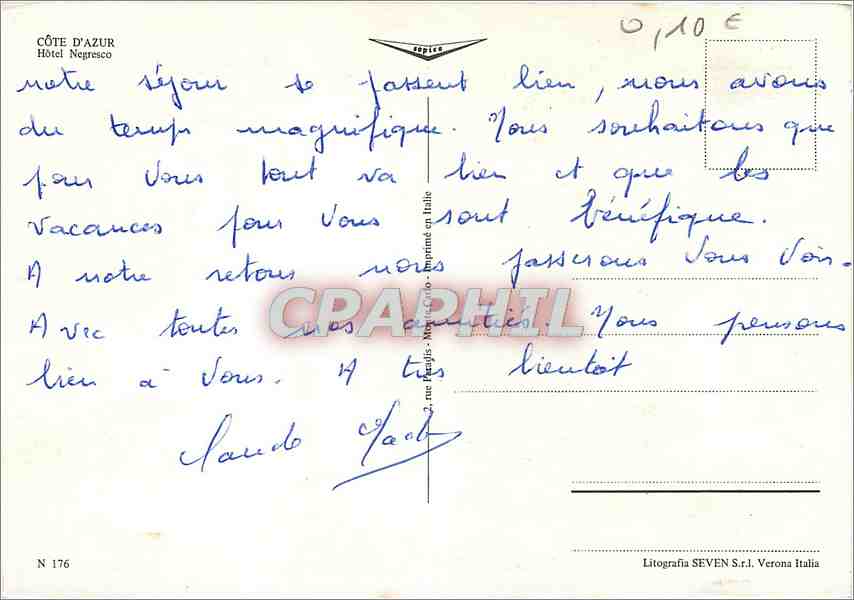 CÔTE D'AZUR
Hôtel Negresco
sopico
0,10 €
notre séjour se passent bien, nous avons
du temps magnifique. Nous souhaitons que
pour vous tout va bien et que les
vacances pour vous sont bénéfique.
A notre retour nous passerons vous voir.
Avec toutes nos amitiés. Nous pensons
bien à vous. A très bientoit
Claude
2, rue Paradis - Monte Carlo - Imprimé en Italie
CPAPHIL
N 176
Litografia SEVEN S.r.l. Verona Italia